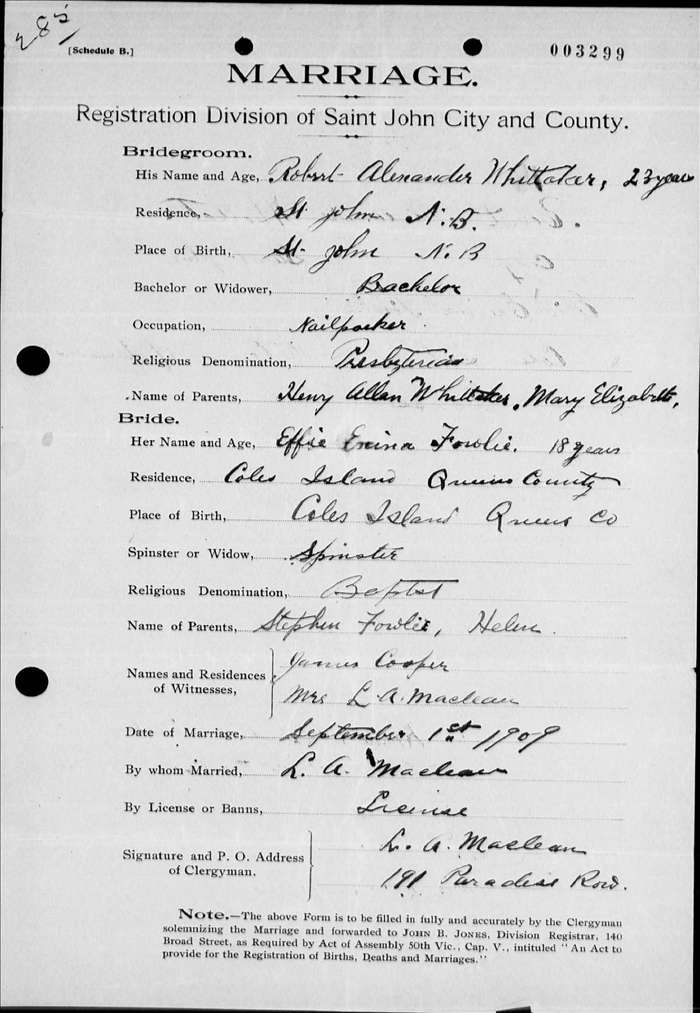 285
[Schedule B.]
003299
MARRIAGE.
Registration Division of Saint John City and County.
Bridegroom.
His Name and Age, Robert Alexander Whittaker, 23 years
Residence, St John N.B.
Place of Birth, St. John N.B
Bachelor or Widower, Bachelor
Occupation, Nailpacker
Religious Denomination, Presbyterian
Name of Parents, Henry Allan Whittaker, Mary Elizabeth,
Bride.
Her Name and Age, Effie Fowlie. 18 years
Residence, Coles Island Queens County
Place of Birth, Coles Island Queens Co
Spinster or Widow, Spinster
Religious Denomination, Baptist
Name of Parents, Stephen Fowlie, Helen
Names and Residences
of Witnesses,
James Cooper
Mrs L. A. Maclean
Date of Marriage, September 1st 1909
By whom Married, L. A. Maclean
By License or Banns, License
Signature and P. O. Address
of Clergyman.
L. A. Maclean
191 Paradise Row.
Note.—The above Form is to be filled in fully and accurately by the Clergyman
solemnizing the Marriage and forwarded to John B. Jones, Division Registrar, 140
Broad Street, as Required by Act of Assembly 50th Vic., Cap. V., intituled "An Act to
provide for the Registration of Births, Deaths and Marriages."